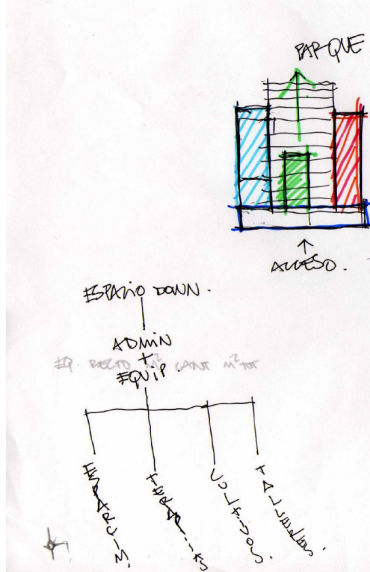 PARQUE
ACCESO.
ESPACIO DOWN.
ADMIN
+
EQUIP.
EQ. RECTO M² CANT M² TOT
ESPARCIM.
TERAPIAS
COLECTIVOS.
TALLERES.